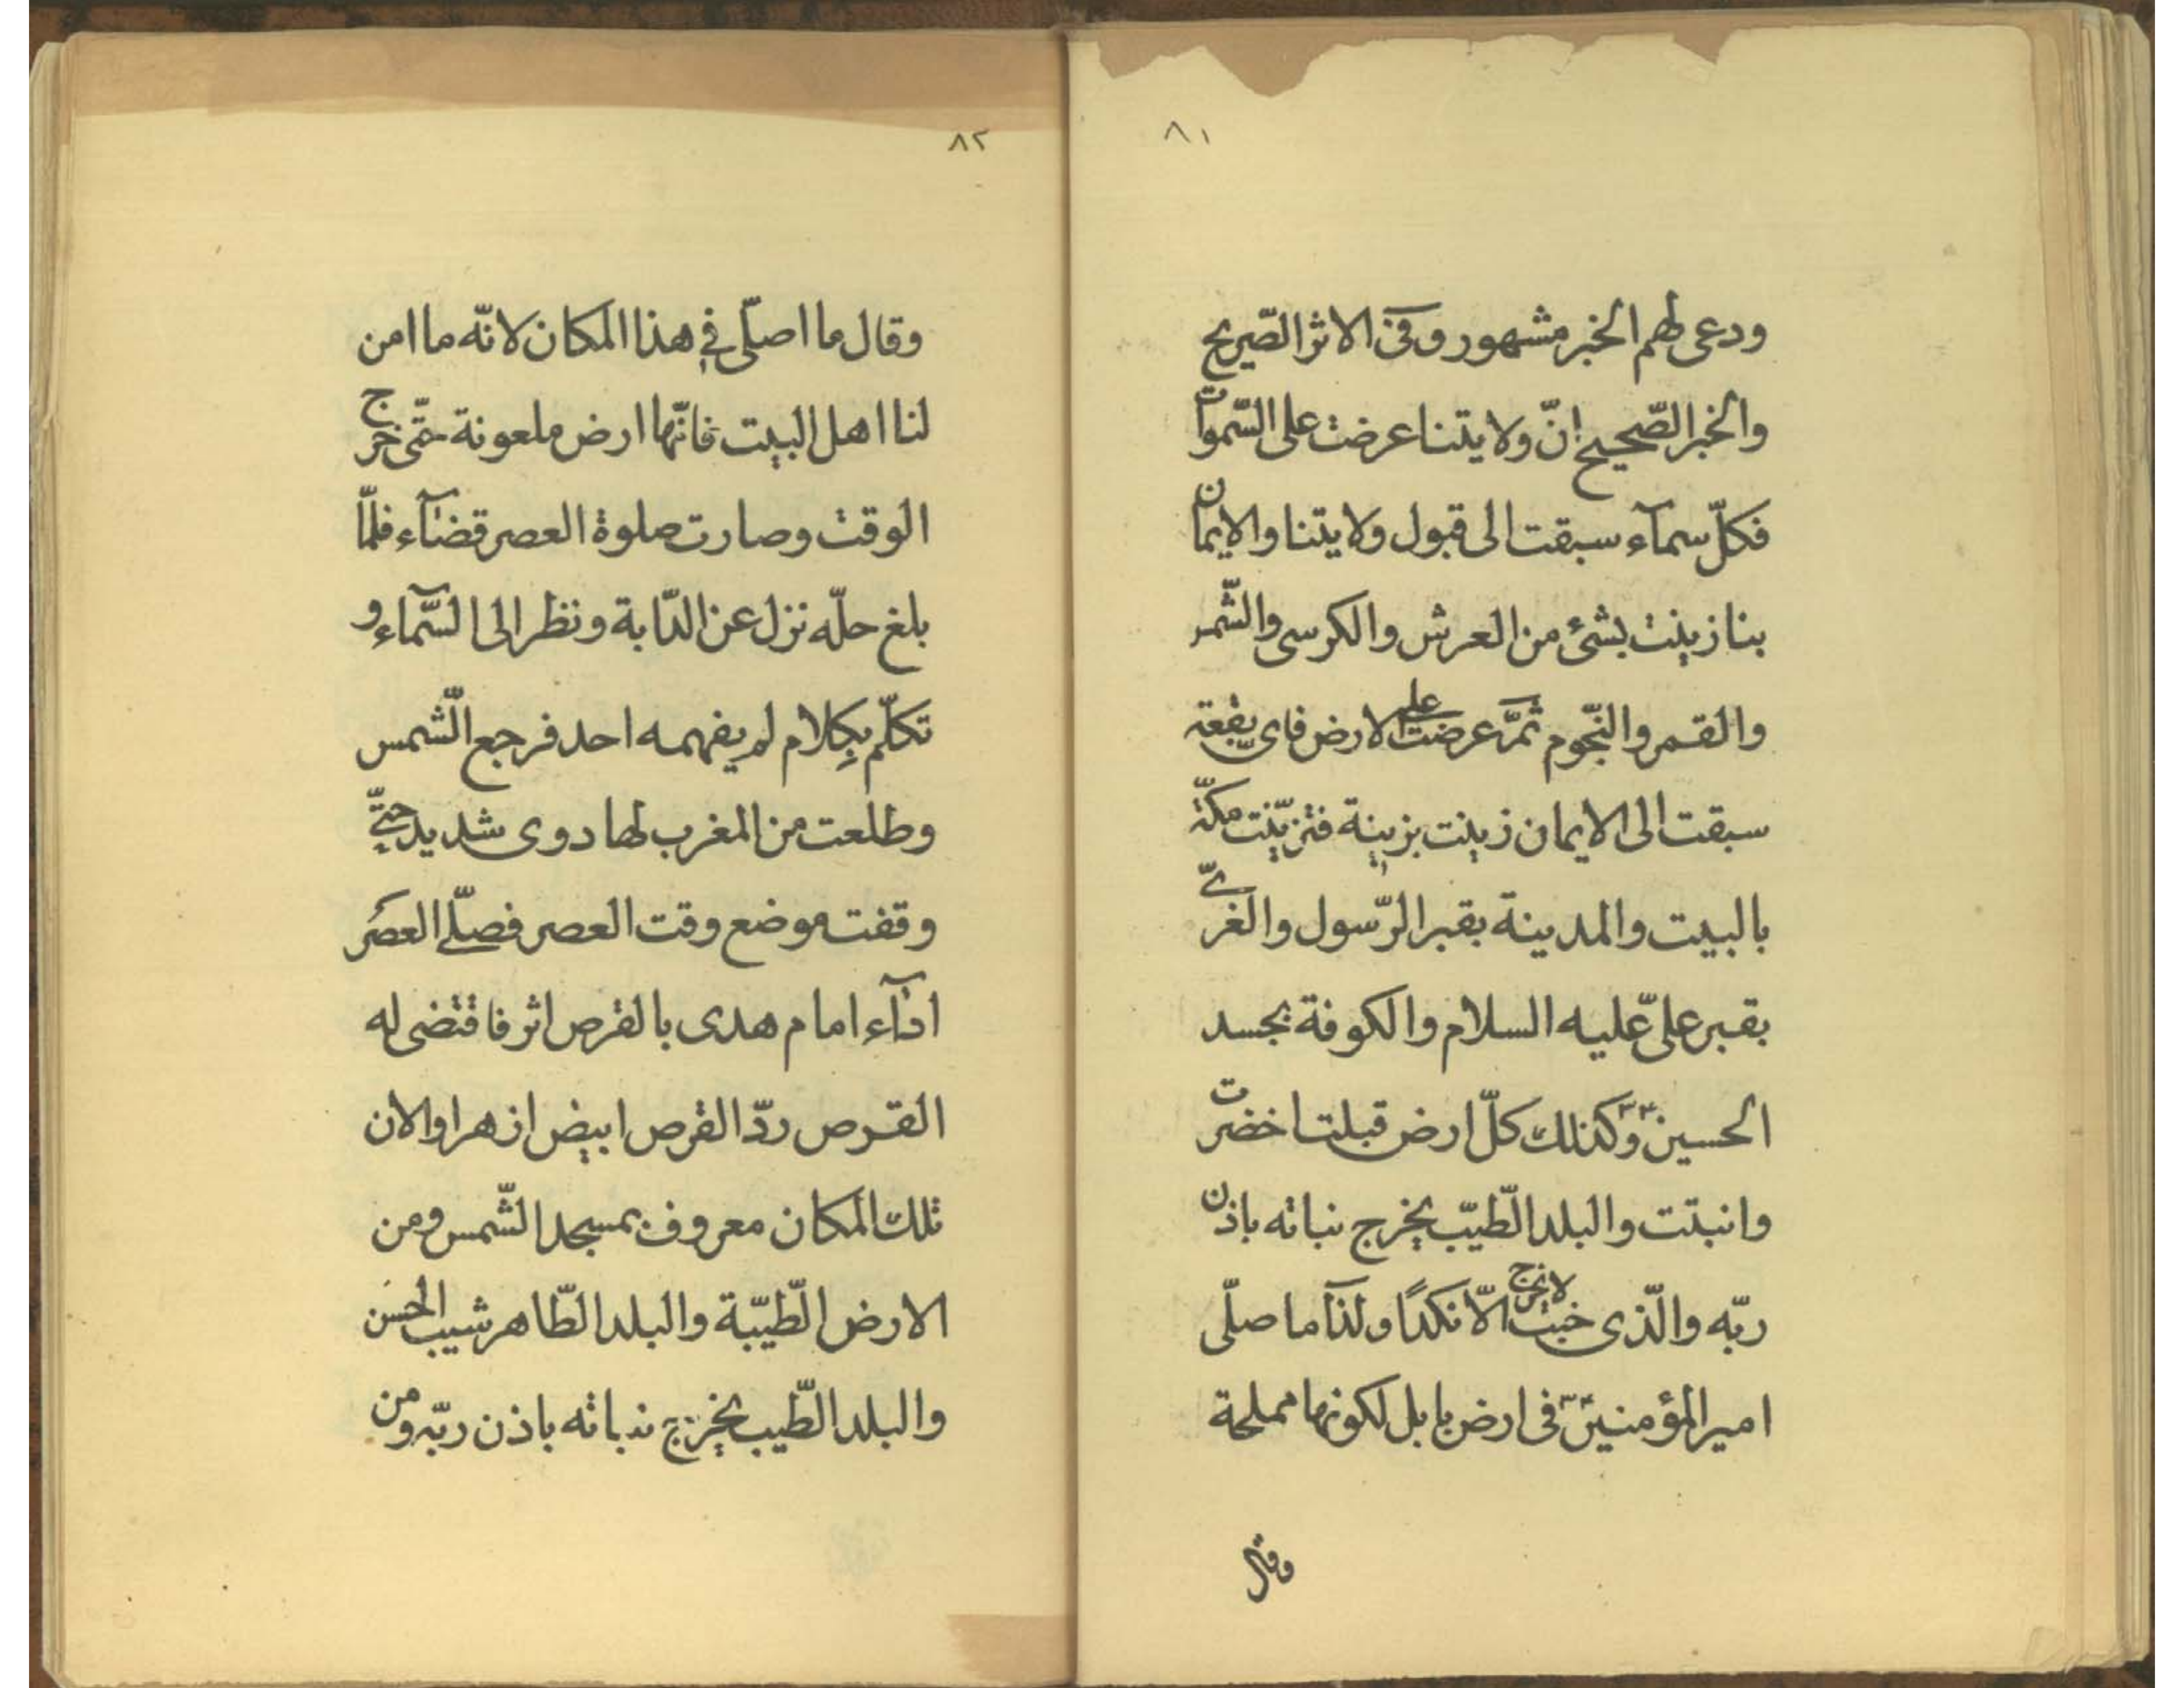 ٨١
ودعى لهم الخبر مشهور وفى الاثر الصّريح
والخبر الصّحيح انّ ولايتنا عرضت على السّموات
فكلّ سمآء سبقت الى قبول ولايتنا والايمان
بنا زينت بشئ من العرش والكرسى والشّمس
والقمر والنّجوم ثمّ عرضت على الارض فاى بقعة
سبقت الى الايمان زينت بزينة فتزيّنت مكّة
بالبيت والمدينة بقبر الرّسول والغرىّ
بقبر علىّ عليه السلام والكوفة بجسد
الحسين ؑ وكذلك كلّ ارض قبلت اخضرت
وانبتت والبلد الطّيّب يخرج نباته باذن
ربّه والّذى خبث لا يخرج الّا نكدًا ولذآ ما صلّى
امير المؤمنين ؑ فى ارض بابل لكونها مملحة
وقال
٨٢
وقال ما اصلّى فى هذا المكان لانّه ما امن
لنا اهل البيت فانّها ارض ملعونة حتّى خرج
الوقت وصارت صلوة العصر قضآء فلمّا
بلغ حلّه نزل عن الدّابة ونظر الى السّمآء و
تكلّم بكلام لم يفهمه احد فرجع الشّمس
وطلعت من المغرب لها دوى شديد حتّى
وقفت موضع وقت العصر فصلّى العصر
ادآء امام هدى بالقرص اثر فاقتضى له
القرص ردّ القرص ابيض ازهرا والان
تلك المكان معروف بمسجد الشّمس ومن
الارض الطّيّبة والبلد الطّاهر شيب الحسن
والبلد الطّيب يخرج نباته باذن ربّه ومن